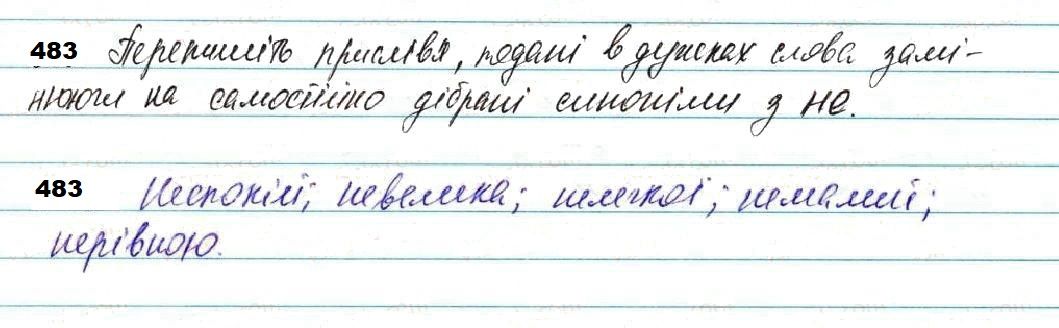 483 Перепишіть прислівя, подані в дужках слова замі-
нюючи на самостійно дібрані синоніми з не.
483 Неспокій; невелика; нелегкої; немалий;
нерівною.